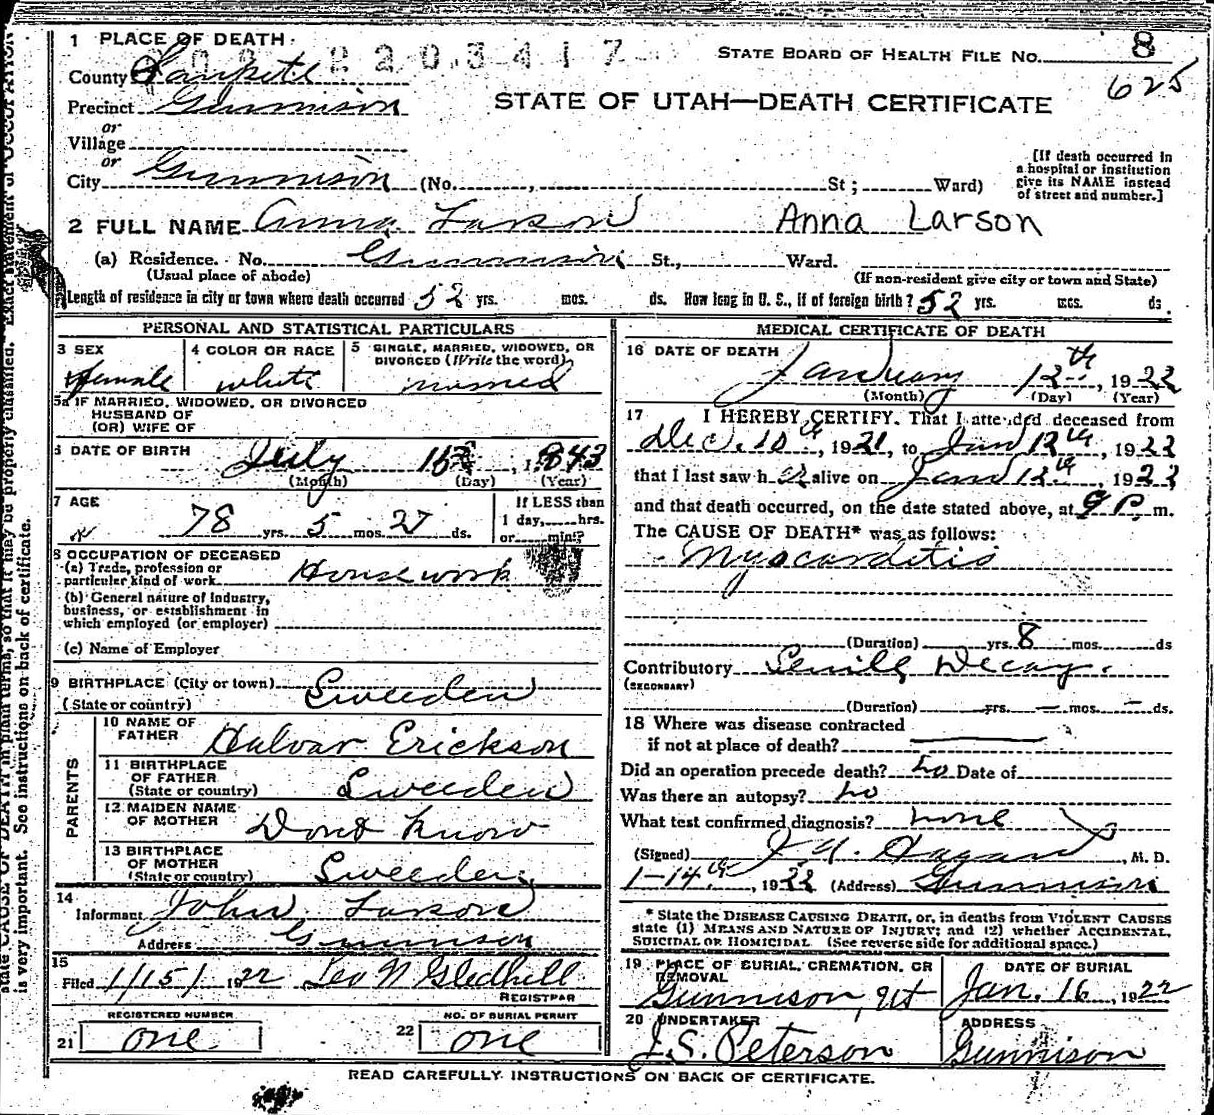 1 PLACE OF DEATH.
2203417
STATE BOARD OF HEALTH FILE No. 8
625
County Sanpete
Precinct Gunnison
STATE OF UTAH—DEATH CERTIFICATE
or
Village
or
City Gunnison (No. , St; Ward)
[If death occurred in
a hospital or institution
give its NAME instead
of street and number.]
2 FULL NAME Anna Larson Anna Larson
(a) Residence. No. Gunnison St., Ward.
(Usual place of abode) (If non-resident give city or town and State)
Length of residence in city or town where death occurred 52 yrs. mos. ds. How long in U. S., if of foreign birth? 52 yrs. mos. ds.
PERSONAL AND STATISTICAL PARTICULARS
3 SEX
female
4 COLOR OR RACE
white
5 SINGLE, MARRIED, WIDOWED, OR
DIVORCED (Write the word)
married
5a IF MARRIED, WIDOWED, OR DIVORCED
HUSBAND OF
(OR) WIFE OF
6 DATE OF BIRTH July 16, 1843
(Month) (Day) (Year)
7 AGE
78 yrs. 5 mos. 27 ds.
If LESS than
1 day, hrs.
or min.?
8 OCCUPATION OF DECEASED
(a) Trade, profession or
particuler kind of work Housework
(b) General nature of industry,
business, or establishment in
which employed (or employer)
(c) Name of Employer
9 BIRTHPLACE (City or town) Sweeden
(State or country)
PARENTS
10 NAME OF
FATHER Halvar Erickson
11 BIRTHPLACE
OF FATHER
(State or country) Sweeden
12 MAIDEN NAME
OF MOTHER Dont Know
13 BIRTHPLACE
OF MOTHER
(State or country) Sweeden
14
Informant John Larson
Address Gunnison
15
Filed 1/15/1922 Leo N Gledhill
REGISTRAR
REGISTERED NUMBER
21 one
NO. OF BURIAL PERMIT
22 one
MEDICAL CERTIFICATE OF DEATH
16 DATE OF DEATH
January 12th, 1922
(Month) (Day) (Year)
17 I HEREBY CERTIFY, That I attended deceased from
Dec. 10th, 1921, to Jan 12th, 1922
that I last saw her alive on Jan 12th, 1922
and that death occurred, on the date stated above, at 9 P. m.
The CAUSE OF DEATH* was as follows:
Myocarditis
(Duration) yrs. 8 mos. ds
Contributory Senile Decay.
(SECONDARY)
(Duration) yrs. mos. ds.
18 Where was disease contracted
if not at place of death?
Did an operation precede death? no Date of
Was there an autopsy? no
What test confirmed diagnosis? none
(Signed) Hagan, M. D.
1-14th, 1922 (Address) Gunnison
* State the DISEASE CAUSING DEATH, or, in deaths from VIOLENT CAUSES
state (1) MEANS AND NATURE OF INJURY; and (2) whether ACCIDENTAL,
SUICIDAL OR HOMICIDAL (See reverse side for additional space.)
19 PLACE OF BURIAL, CREMATION, OR
REMOVAL
Gunnison, Ut
DATE OF BURIAL
Jan. 16, 1922
20 UNDERTAKER
J. S. Peterson
ADDRESS
Gunnison
READ CAREFULLY INSTRUCTIONS ON BACK OF CERTIFICATE.
state CAUSE OF DEATH in plain terms, so that it may be properly classified. Exact statement of OCCUPATION
is very important. See instructions on back of certificate.